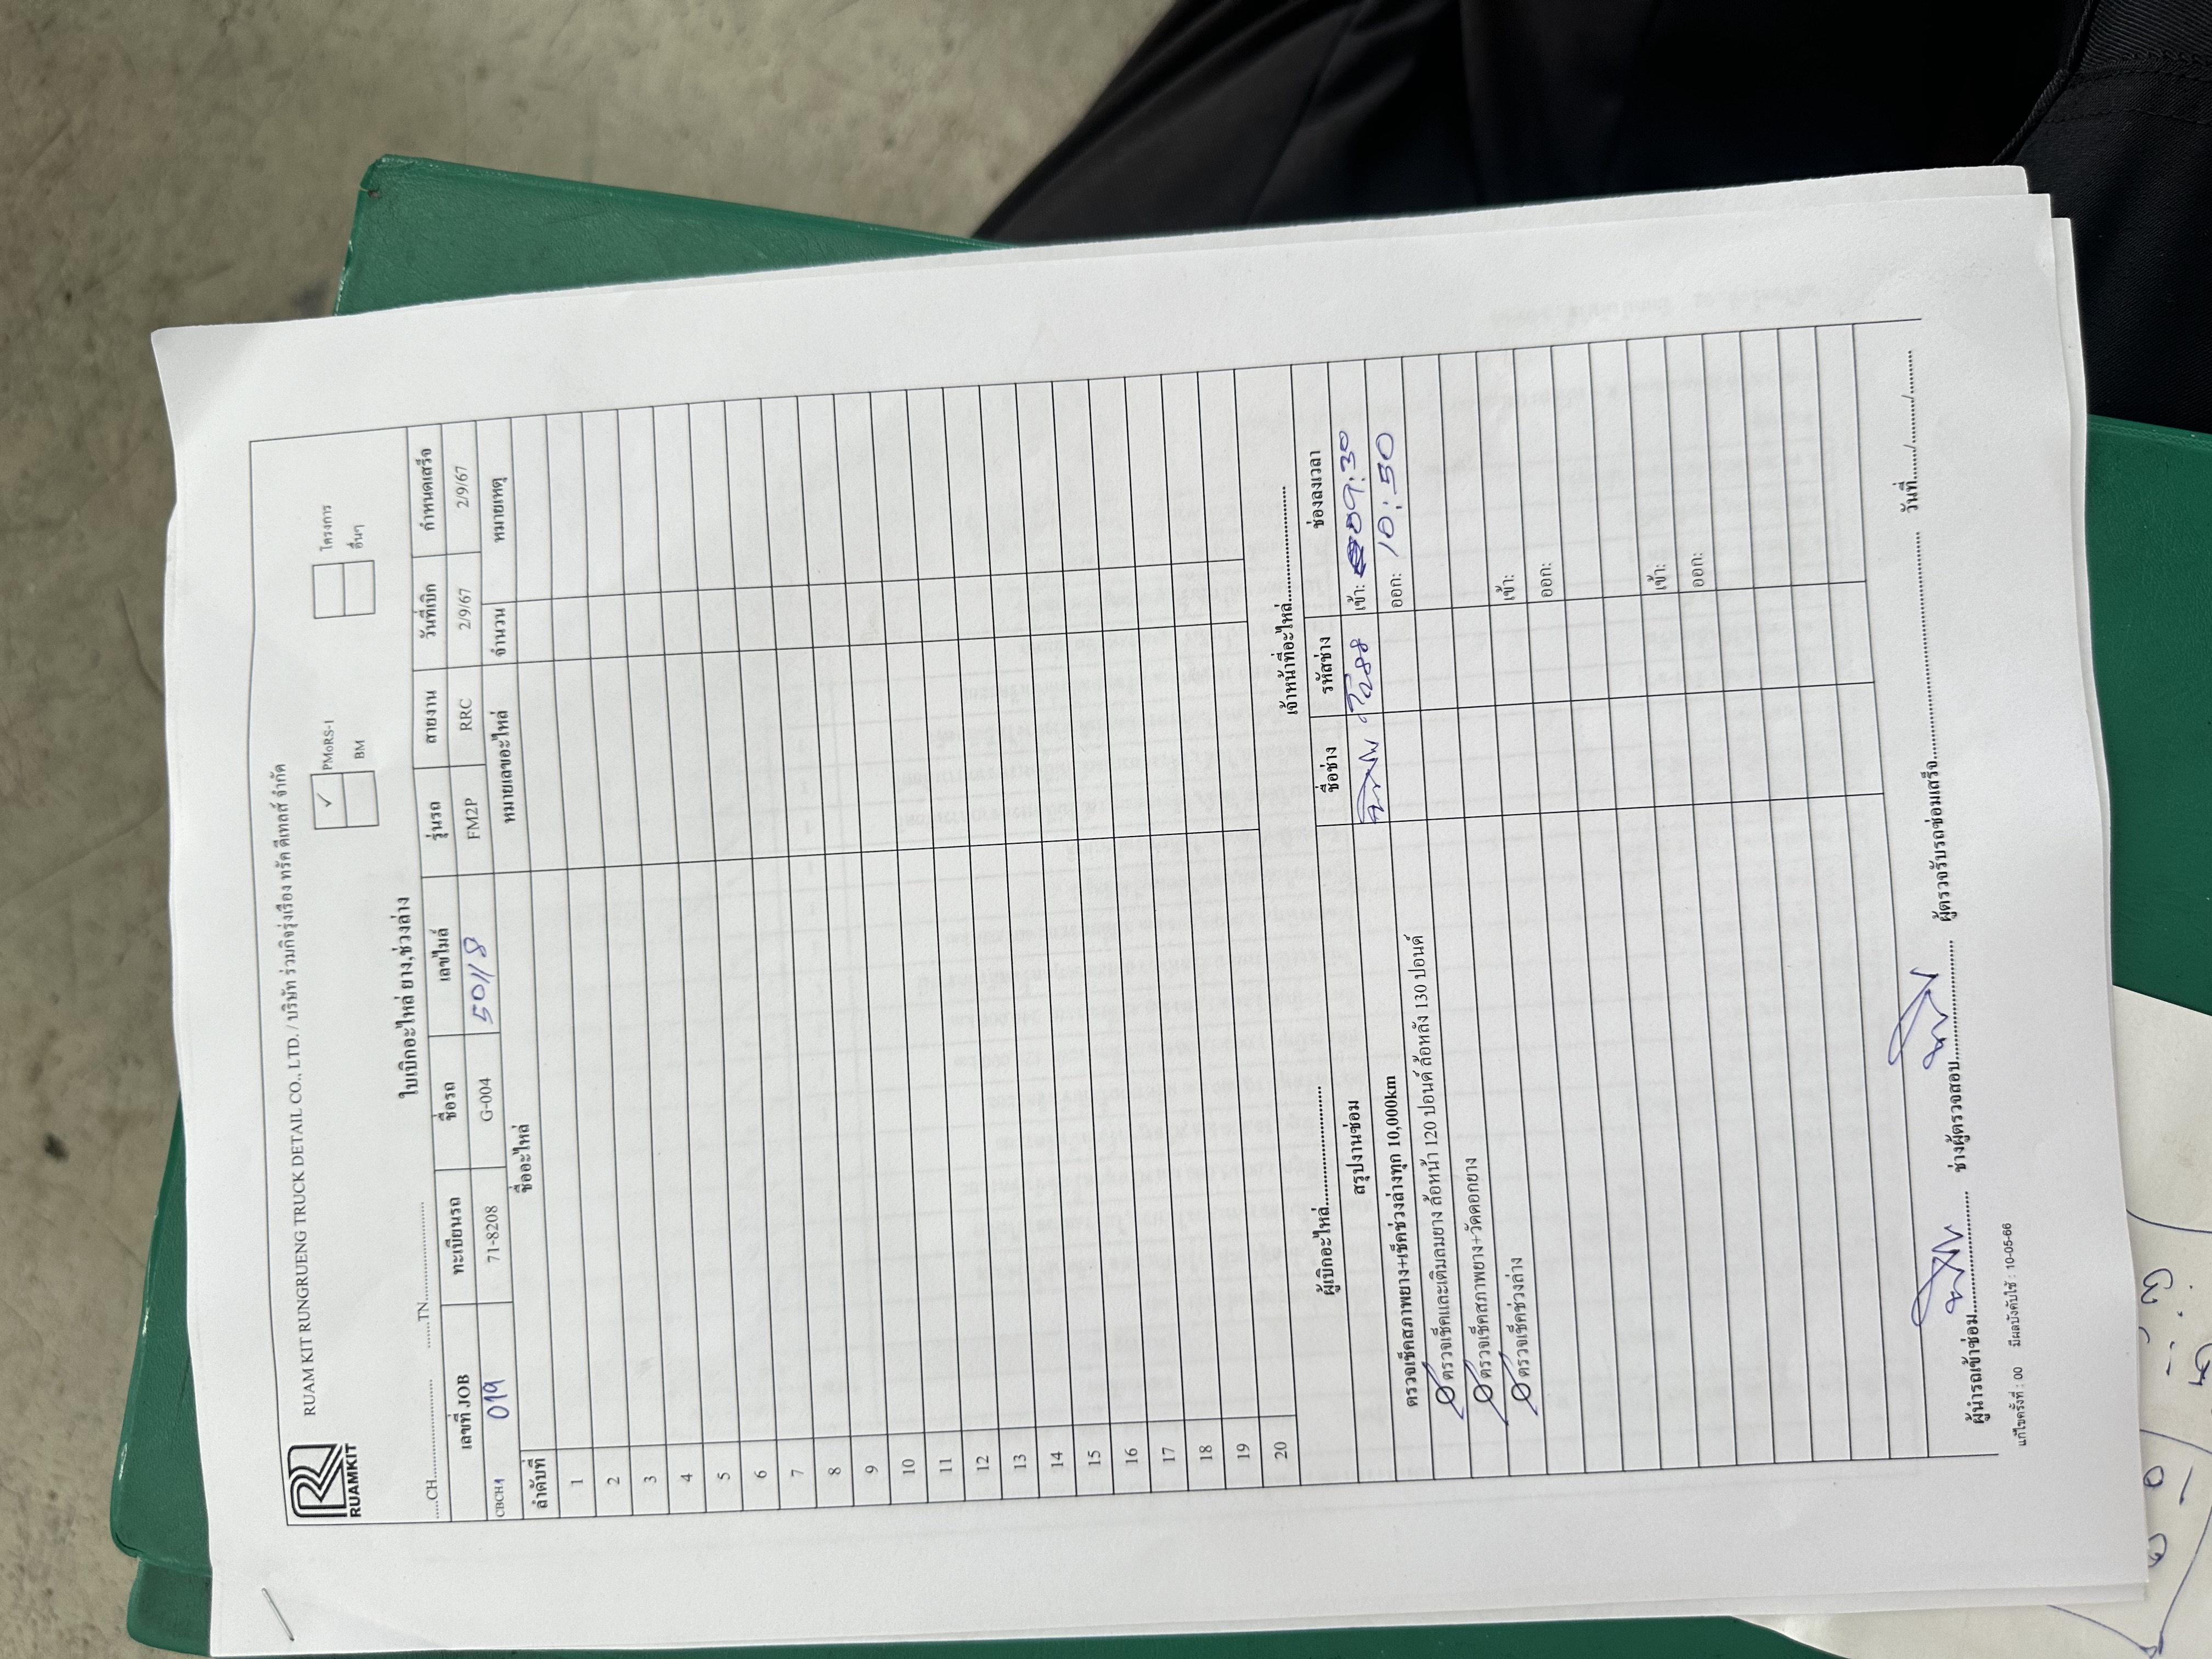 RUAMKIT
RUAM KIT RUNGRUENG TRUCK DETAIL CO., LTD. / บริษัท ร่วมกิจรุ่งเรือง ทรัค ดีเทลส์ จำกัด
✓ PMoRS-1 โครงการ
BM อื่นๆ
ใบเบิกอะไหล่ ยาง,ช่วงล่าง
.....CH.......................... .......TN..........................
เลขที่ JOB ทะเบียนรถ ชื่อรถ เลขไมล์ รุ่นรถ สายงาน วันที่เบิก กำหนดเสร็จ
CBCH1 019 71-8208 G-004 50118 FM2P RRC 2/9/67 2/9/67
ลำดับที่ ชื่ออะไหล่ หมายเลขอะไหล่ จำนวน หมายเหตุ
1
2
3
4
5
6
7
8
9
10
11
12
13
14
15
16
17
18
19
20
ผู้เบิกอะไหล่............................ เจ้าหน้าที่อะไหล่...........................
สรุปงานซ่อม ชื่อช่าง รหัสช่าง ช่องลงเวลา
ตรวจเช็คสภาพยาง+เช็คช่วงล่างทุก 10,000km เข้า: 09:30
ตรวจเช็คและเติมลมยาง ล้อหน้า 120 ปอนด์ ล้อหลัง 130 ปอนด์ ออก: 10:50
ตรวจเช็คสภาพยาง+วัดดอกยาง
ตรวจเช็คช่วงล่าง
เข้า:
ออก:
เข้า:
ออก:
ผู้นำรถเข้าซ่อม............................ ช่างผู้ตรวจสอบ............................ ผู้ตรวจรับรถซ่อมเสร็จ..................................................... วันที่......./........../..........
แก้ไขครั้งที่ : 00 มีผลบังคับใช้ : 10-05-66